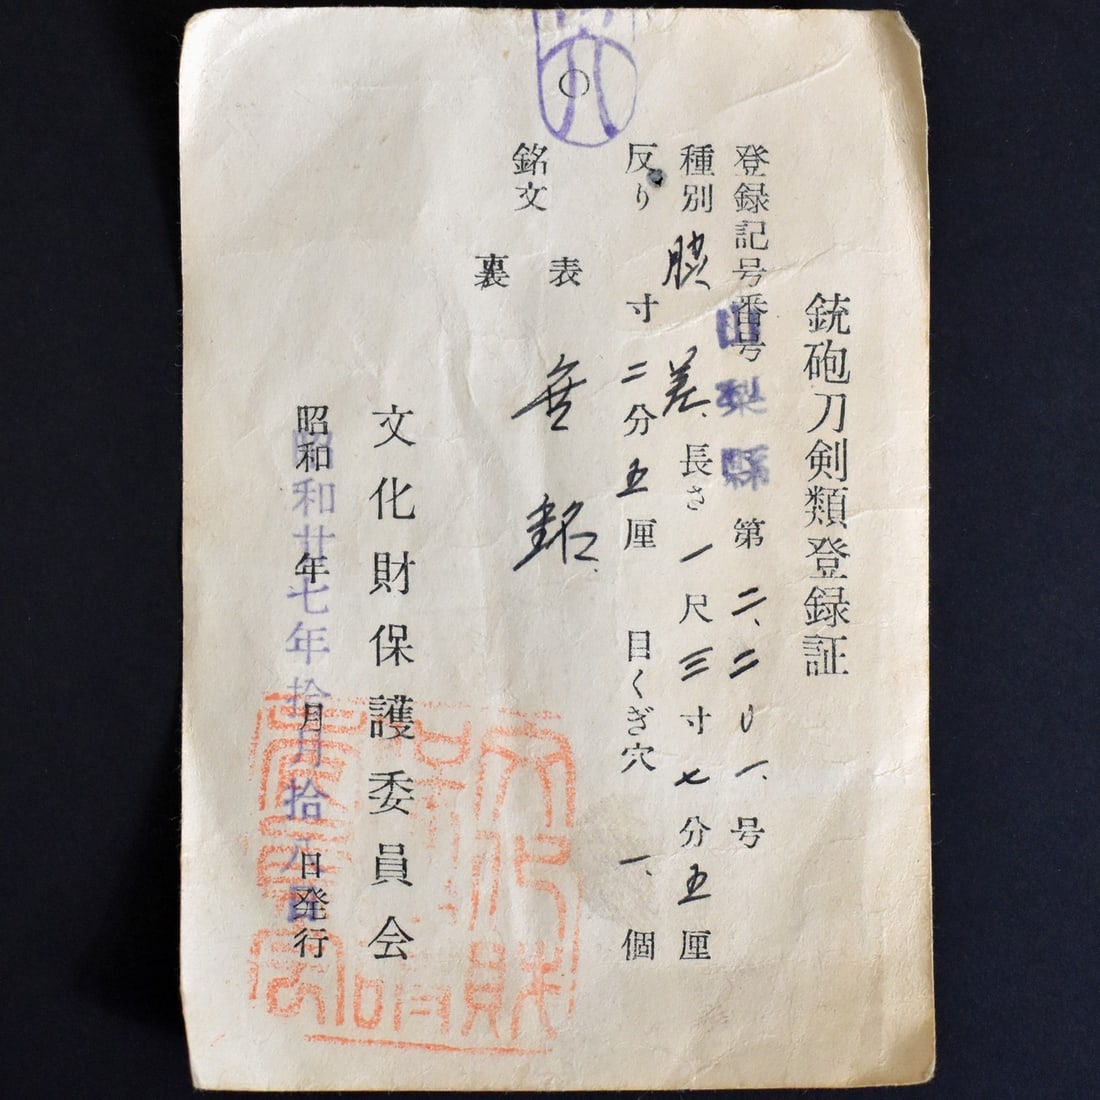 銃砲刀剣類登録証
登録記号番号 山梨縣 第二、二〇一、号
種別 脇差、長さ 一尺三寸七分五厘
反り 寸二分五厘 目くぎ穴 一、個
銘文 表 無銘
裏
文化財保護委員会
昭和 年 月 日発行
昭和廿七年拾月拾八日